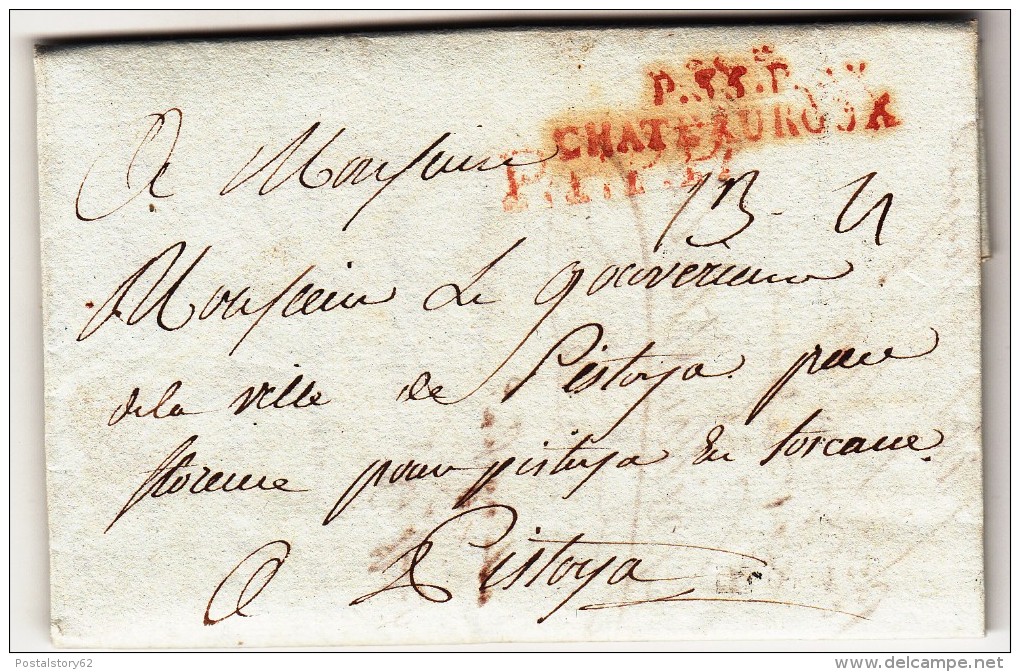 P.35.P.
CHATEAUROUX
P.P.P.P.
A Monsieur
Monsieur le gouverneur
de la ville de Pistoya par
florence pour pistoya En toscane.
A Pistoya
Postalstory62
delcampe.net